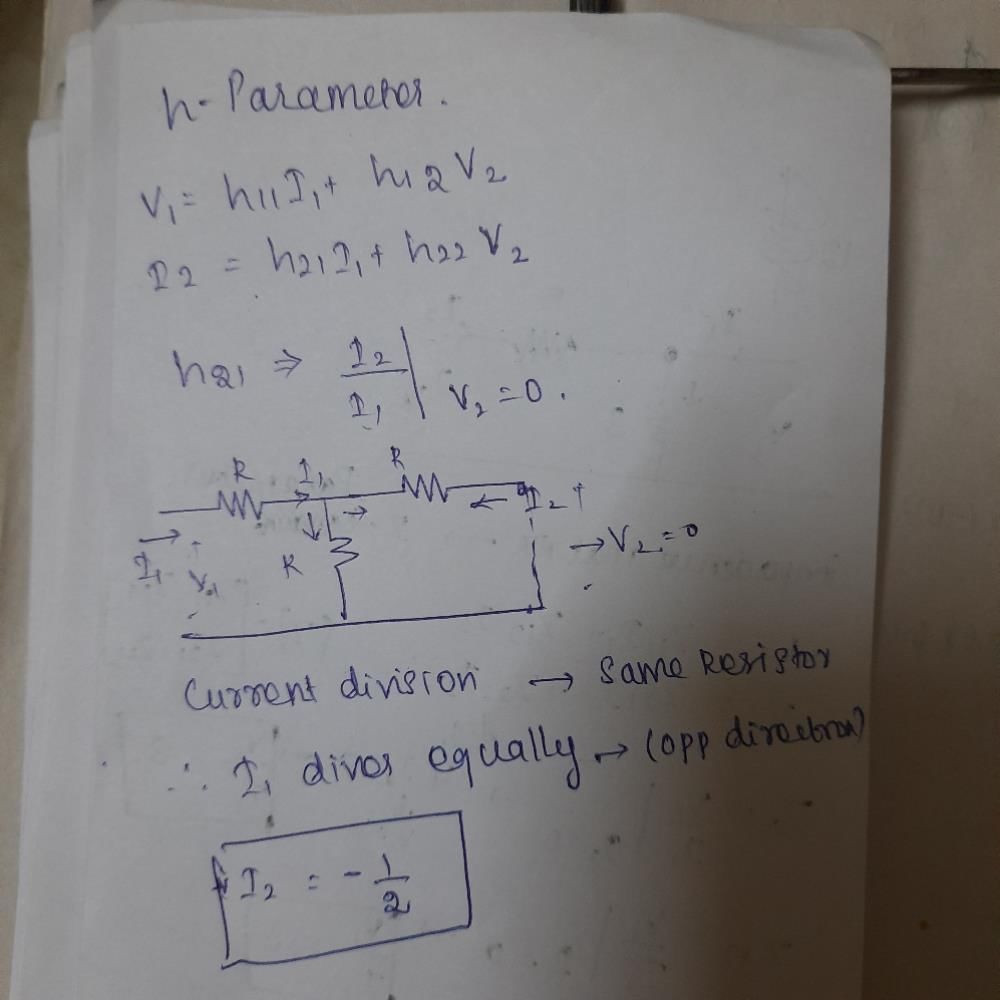 h-Parameter.
V₁= h₁₁I₁+ h₁₂V₂
I₂ = h₂₁I₁+ h₂₂ V₂
h₂₁ ⇒ I₂/I₁ | V₂=0.
R I₁ R
I₁ + V₁ - R ← I₂ → V₂=0
Current division → Same Resistor
∴ I₁ dives equally → (opp direction)
I₂ = - 1/2